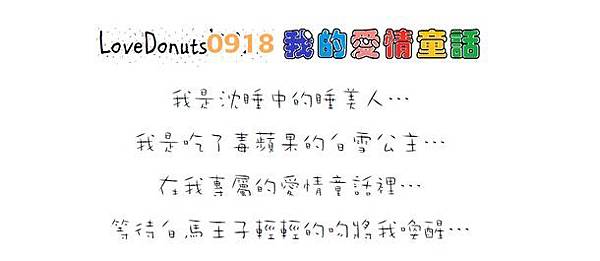 LoveDonuts0918 我的愛情童話
我是沈睡中的睡美人…
我是吃了毒蘋果的白雪公主…
在我專屬的愛情童話裡…
等待白馬王子輕輕的吻將我喚醒…